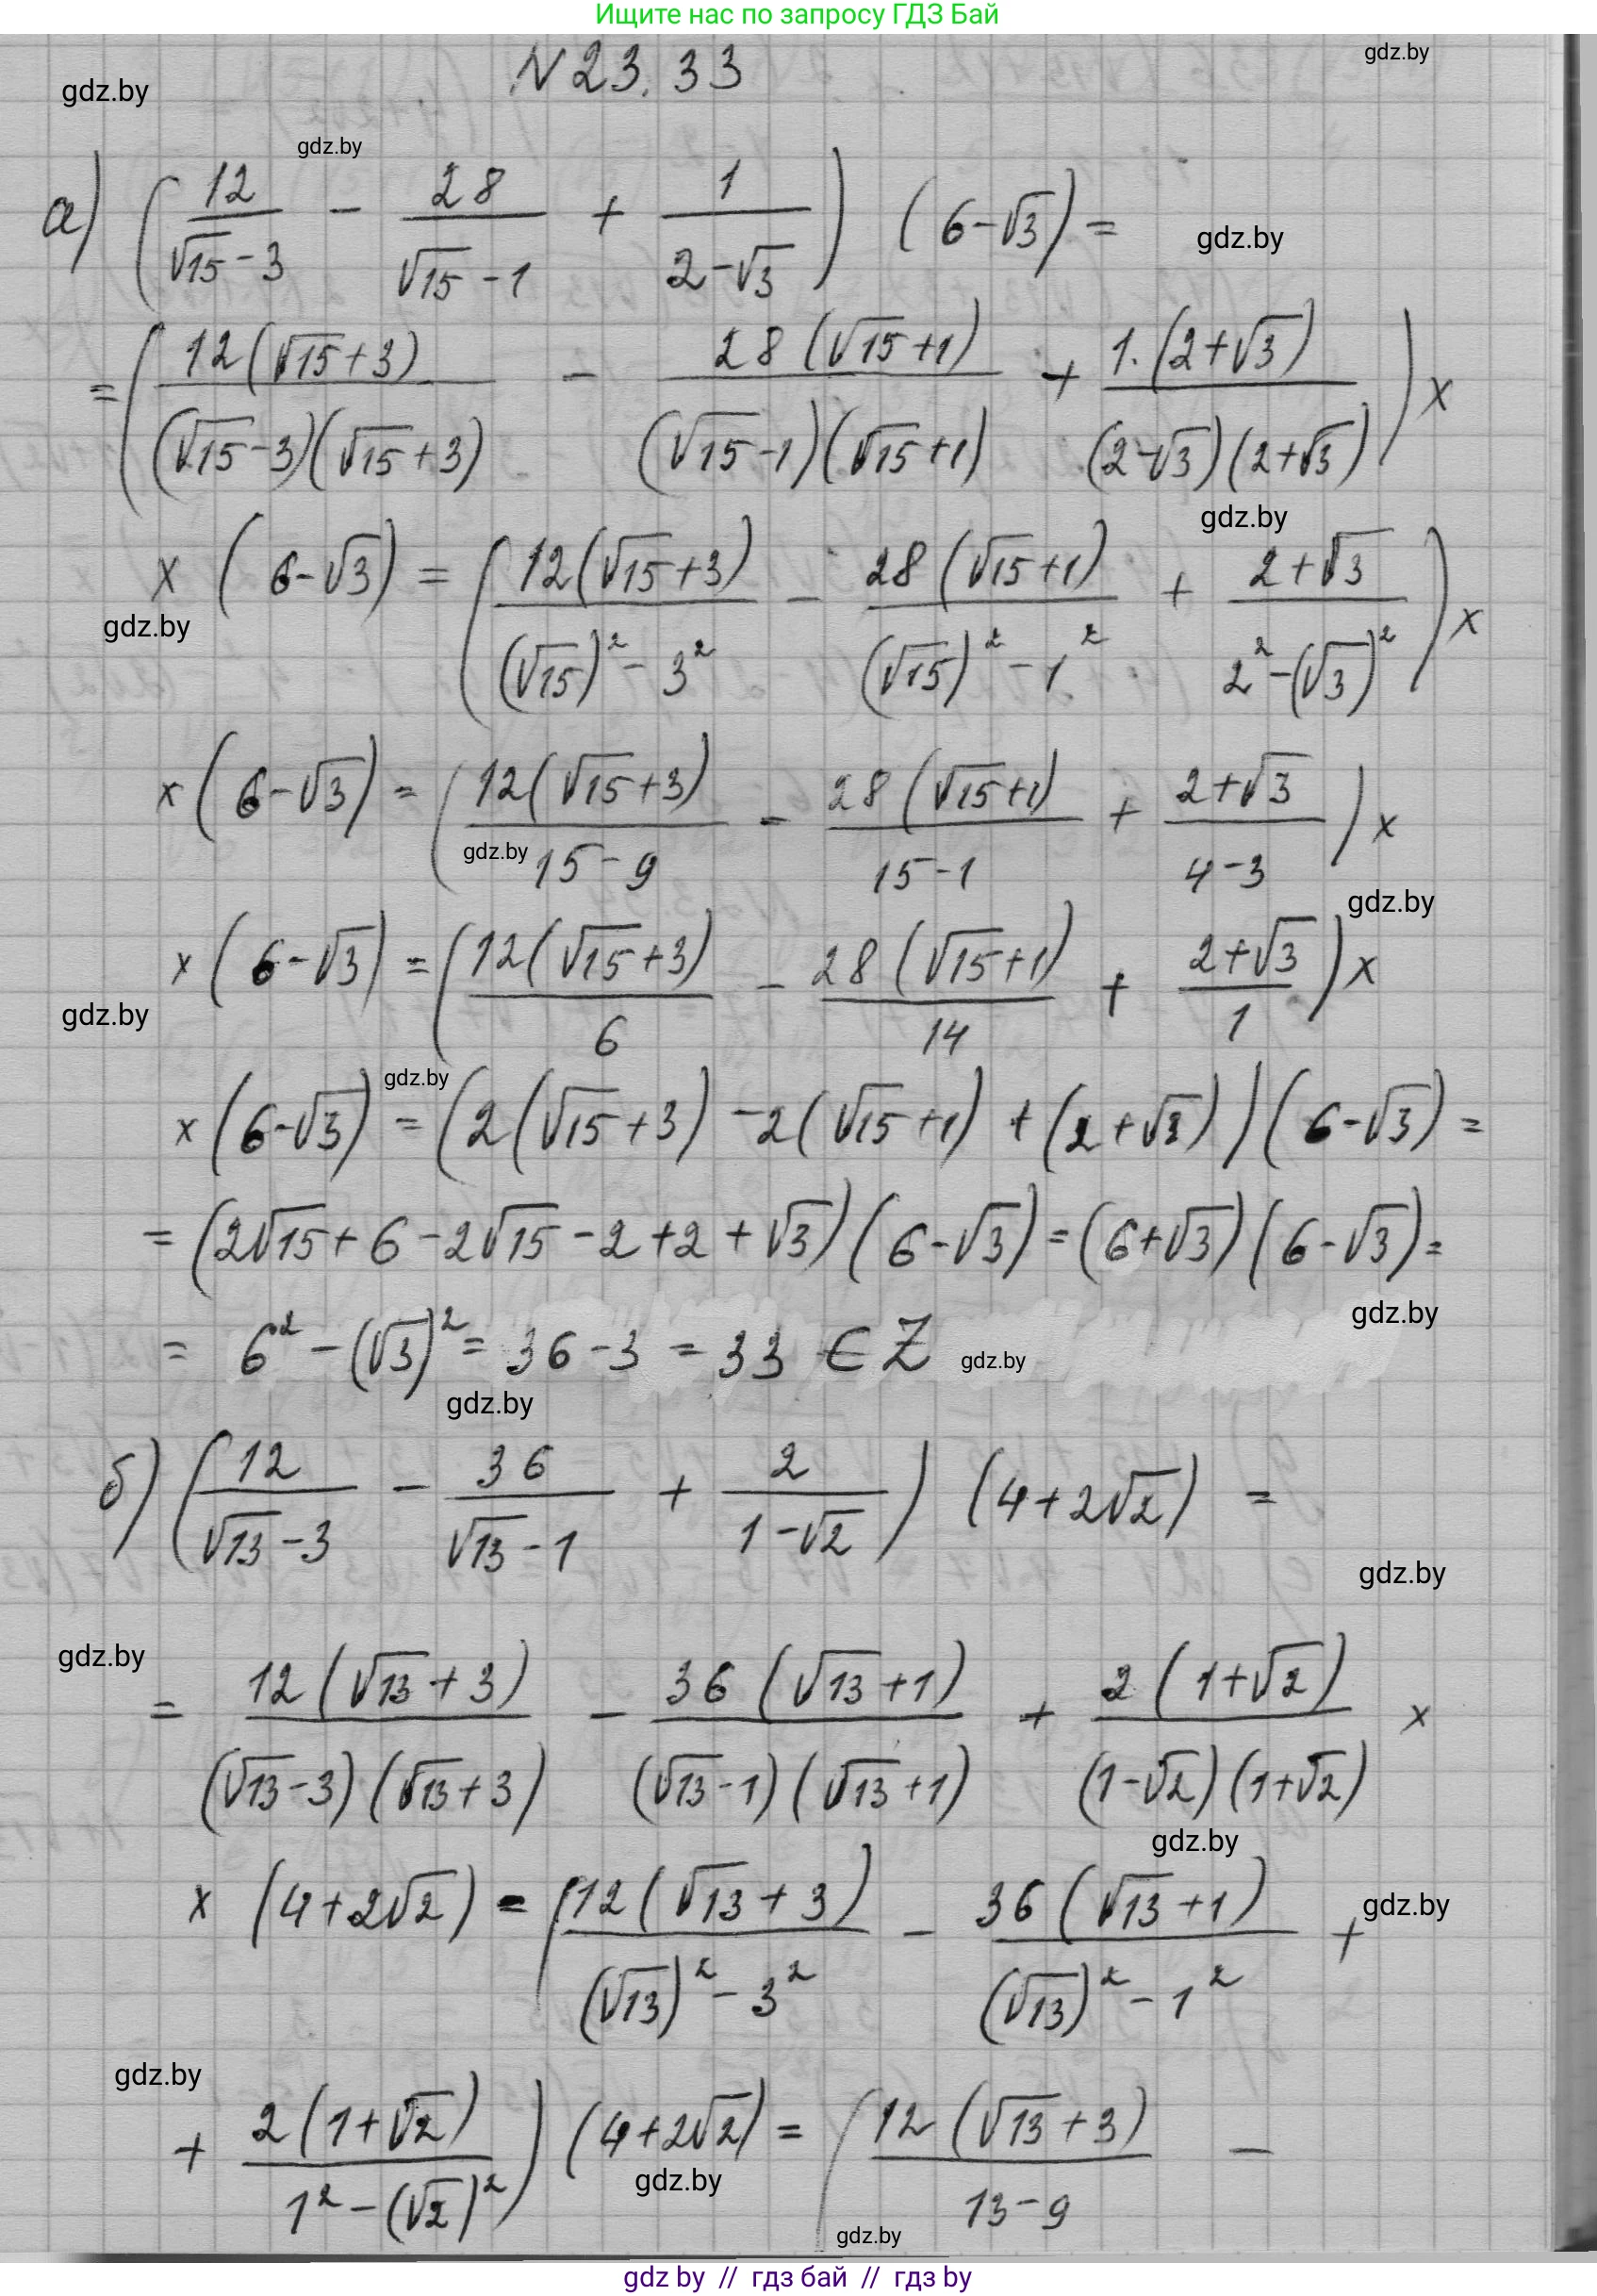 Ищите нас по запросу ГДЗ Бай
gdz.by
N 23.33
gdz.by
gdz.by
а) (12/(√15-3) - 28/(√15-1) + 1/(2-√3)) (6-√3) =
gdz.by
= (12(√15+3)/((√15-3)(√15+3)) - 28(√15+1)/((√15-1)(√15+1)) + 1·(2+√3)/((2-√3)(2+√3))) x
gdz.by
x (6-√3) = (12(√15+3)/((√15)²-3²) - 28(√15+1)/((√15)²-1²) + (2+√3)/(2²-(√3)²)) x
gdz.by
x (6-√3) = (12(√15+3)/(15-9) - 28(√15+1)/(15-1) + (2+√3)/(4-3)) x
gdz.by
gdz.by
x (6-√3) = (12(√15+3)/6 - 28(√15+1)/14 + (2+√3)/1) x
gdz.by
gdz.by
x (6-√3) = (2(√15+3) -2(√15+1) + (2+√3)) (6-√3) =
= (2√15+6-2√15-2+2+√3)(6-√3) = (6+√3)(6-√3) =
gdz.by
= 6²-(√3)² = 36-3 = 33 ∈ Z
gdz.by
gdz.by
б) (12/(√13-3) - 36/(√13-1) + 2/(1-√2)) (4+2√2) =
gdz.by
gdz.by
= 12(√13+3)/((√13-3)(√13+3)) - 36(√13+1)/((√13-1)(√13+1)) + 2(1+√2)/((1-√2)(1+√2)) x
gdz.by
x (4+2√2) = (12(√13+3)/((√13)²-3²) - 36(√13+1)/((√13)²-1²) +
gdz.by
gdz.by
+ 2(1+√2)/(1²-(√2)²)) (4+2√2) = (12(√13+3)/(13-9) -
gdz.by
gdz.by
gdz by // гдз бай // гдз by